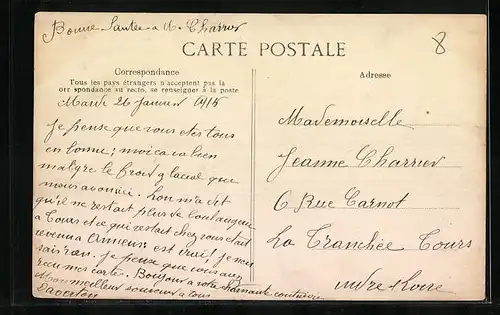 Bonne Santée a M. Charrier
CARTE POSTALE
8
Correspondance
Tous les pays étrangers n'acceptent pas la
correspondance au recto, se renseigner à la poste
Mardi 26 Janvier 1915
Je pense que vous etes tous
en bonne; moi ca va bien
malgre le froid glacial que
nous avons ici. L'on m'a dit
qu'il ne restait plus de
a Tours et ce qui restait chez vous était
revenu a Amiens est vrai! Je
sais rien. Je pense que vous avez
recu mes cartes. Bonjour a votre charmante couturière
Mon meilleur souvenir a tous
Adresse
Mademoiselle
Jeanne Charrier
6 Rue Carnot
La Tranchée Tours
Indre & Loire